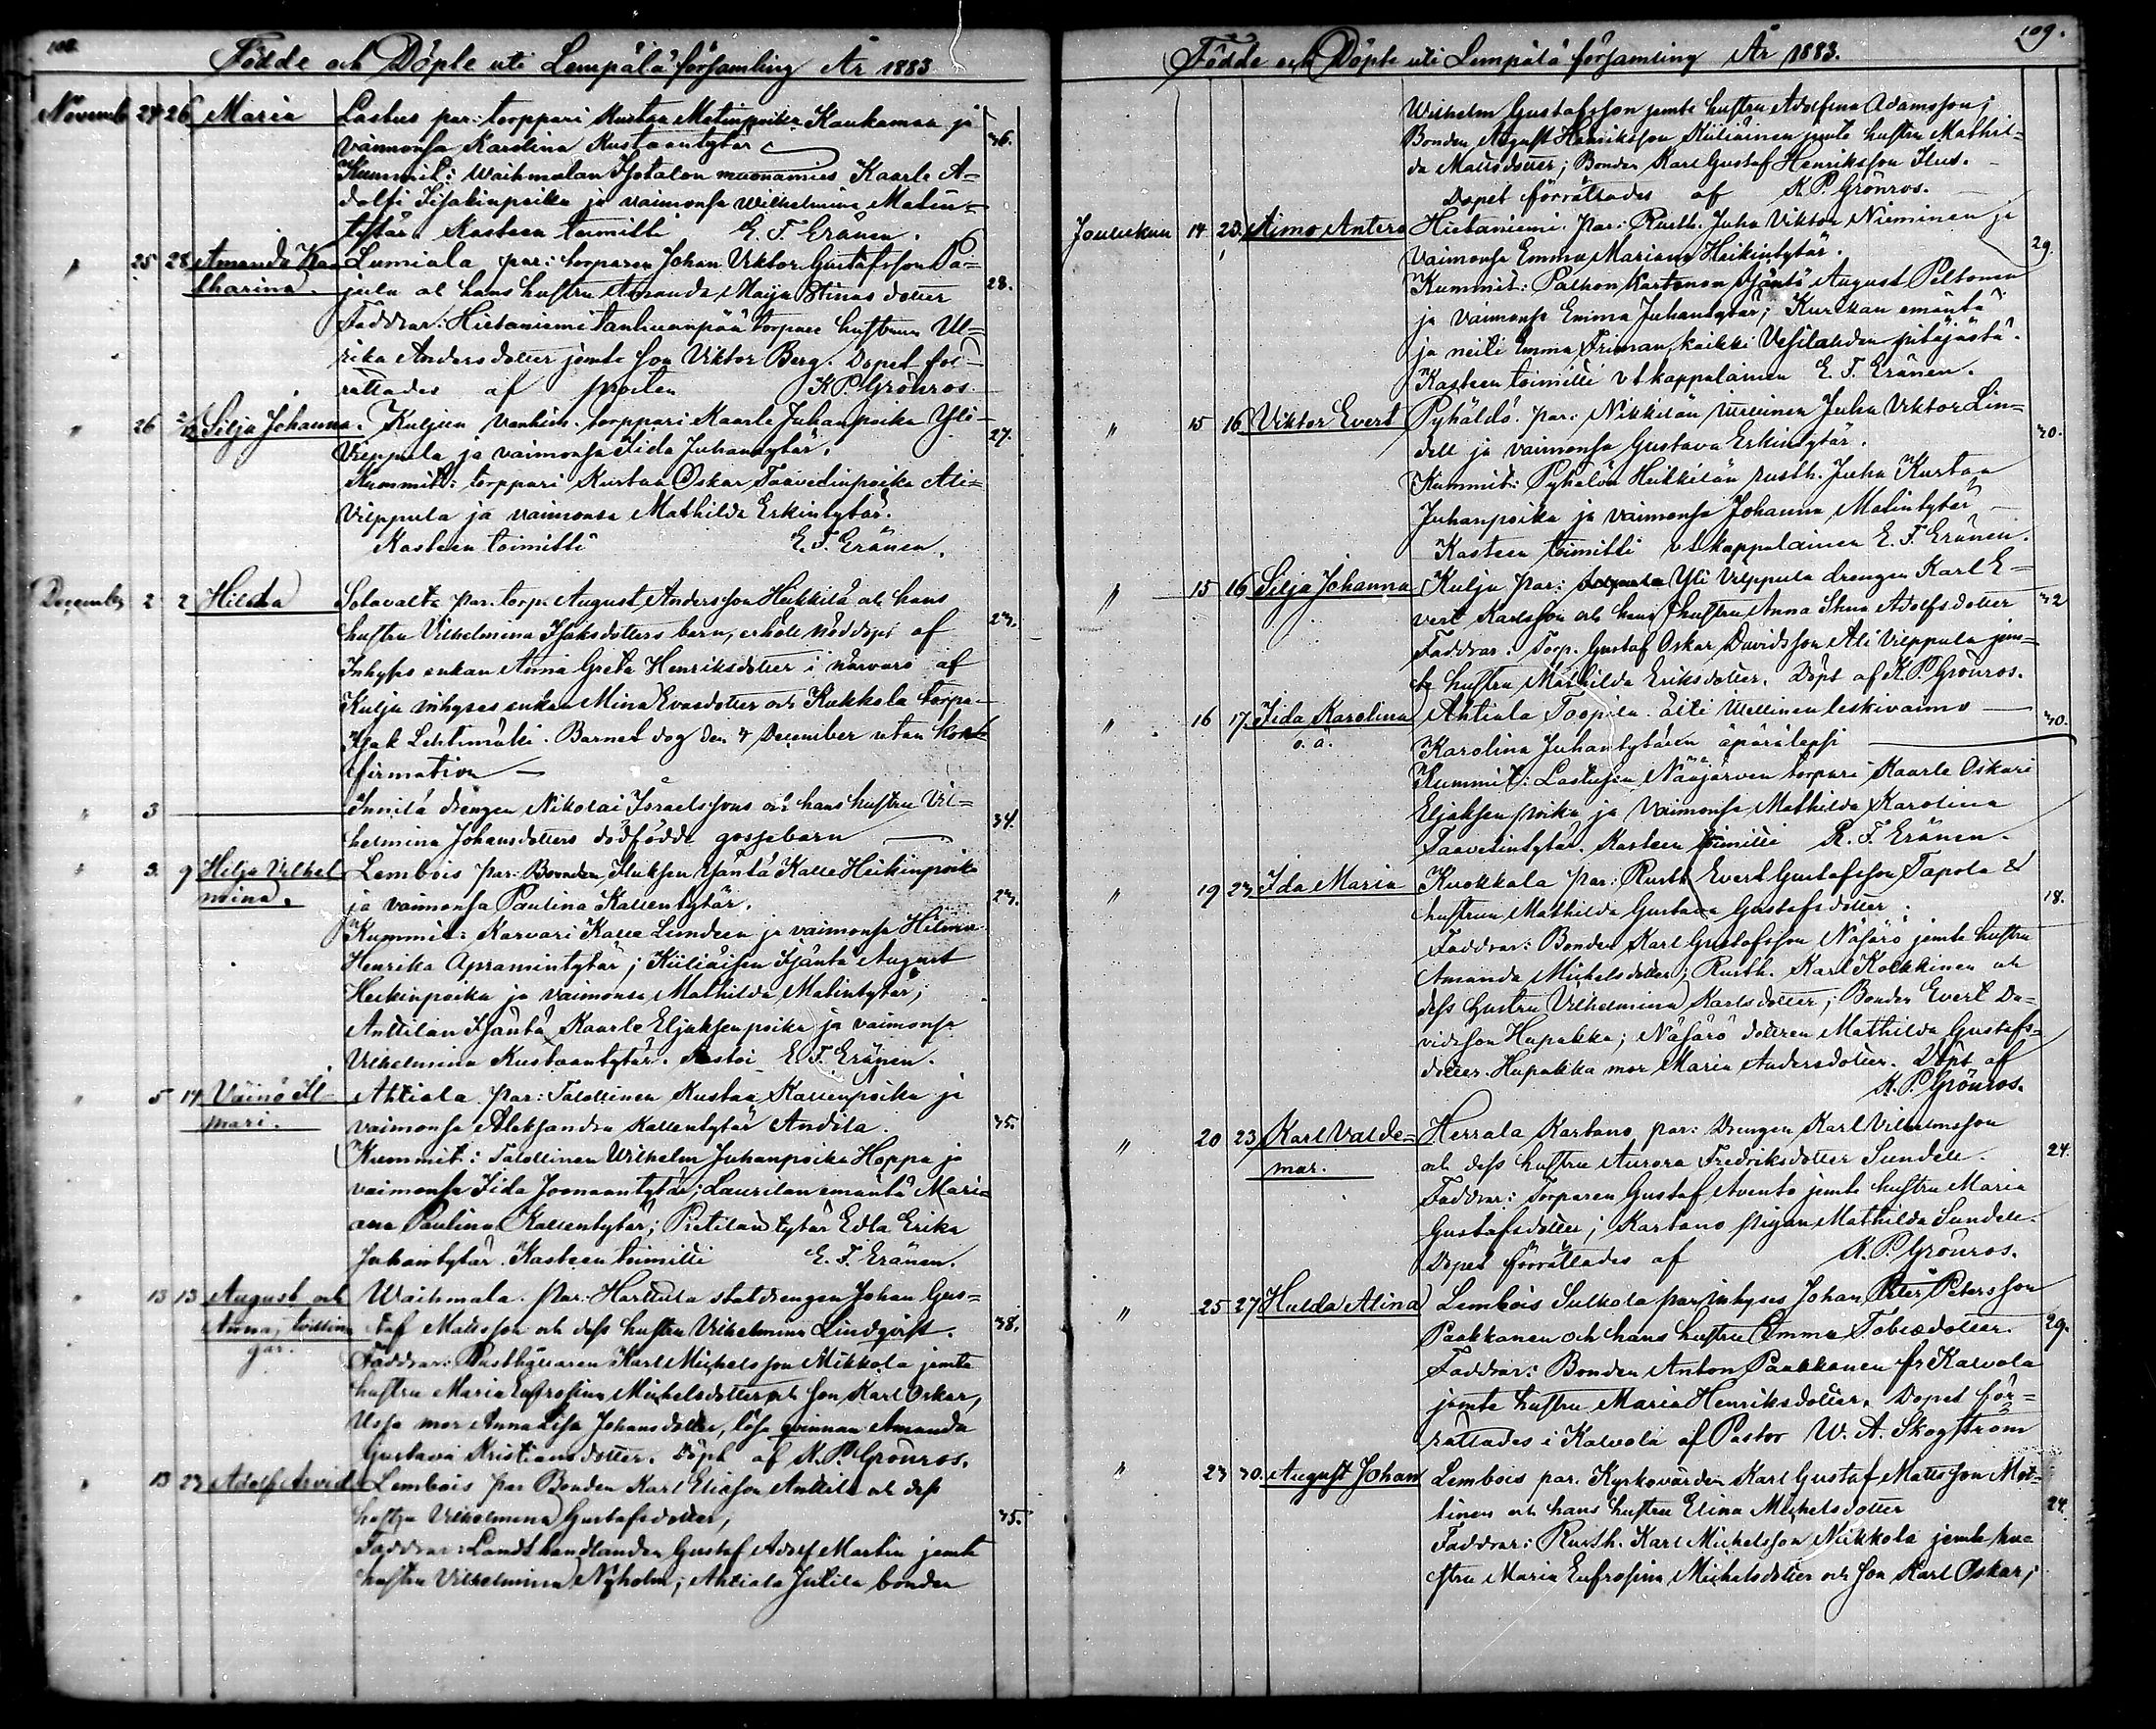 108.
Födde och Döpte uti Lempälä församling År 1883
Novemb. 24 26 Maria Lastus par: torppari Kustaa Matinpoika Kaukamaa ja 36.
vaimonsa Karolina Kustaantytär
Kummit: Waihmalan Isotalon muonamies Kaarle A-
dolfi Iisakinpoika ja vaimonsa Wilhelmina Matin-
tytär. Kasteen toimitti E. F. Eränen.
" 25 28 Amanda Ka- Lumiala par: torparen Johan Viktor Gustafsson Pa- 28.
tharina. jula ok hans hustru Amanda Maija Stinas dotter
Faddrar: Hietaniemi Tanhuanpää torpare hustrun Ul-
rika Andersdotter jemte son Viktor Berg. Dopet för-
rättades af K. P. Grönros.
" 26 2/12 Silja Johanna. Kuljun torppari Kaarle Juhanpoika Yli- 27.
Vilppula ja vaimonsa Iida Juhantytär.
Kummit: torppari Kustaa Oskar Taavedinpoika Ali-
Vilppula ja vaimonsa Mathilda Erkintytär.
Kasteen toimitti E. F. Eränen.
December 2 2 Hilda Sotavalta par. torp. August Andersson Heikkilä och hans 23.
hustru Vilhelmina Isaksdotters barn, erhöll nöddopt af
Inhyses enkan Anna Greta Henriksdotter i närvaro af
Kulju inhyses enkan Mina Evasdotter och Kukkola torpa-
Isak Lehtimäki. Barnet dog den 4 December utan kon-
firmation
" 3 Innilä drengen Nikolai Israelssons och hans hustru Vil- 34.
helmina Johansdotters dödfödde gossebarn
" 3. 9 Hilja Vilhel- Lembois par: Bonden Isäntä Kalle Heikinpoika 23.
mina. ja vaimonsa Paulina Kallentytär.
Kummit: Karvari Kalle Lindeen ja vaimonsa Hilma
Henrika Apramintytär; Kiiliäisen Isäntä August
Heikinpoika ja vaimonsa Mathilda Matintytär;
Anttilan Isäntä Kaarle Eljaksenpoika ja vaimonsa
Vilhelmina Kustaantytär. Kastoi E. F. Eränen.
" 5 14 Väinö Il- Ahtiala. par: Talollinen Kustaa Kallenpoika ja 35.
mari. vaimonsa Aleksandra Kallentytär Andila.
Kummit: Talollinen Wilhelm Juhanpoika Hoppa ja
vaimonsa Iida Joonaantytär; Laurilan emäntä Mari-
ana Paulina Kallentytär; Pietilän tytär Edla Erika
Juhantytär. Kasteen toimitti E. F. Eränen.
" 13 13 August och Waihmala. par: Harttula statdrengen Johan Gus- 38.
Anna, tvillin- taf Mattsson och dess hustru Vilhelmina Lindqvist.
gar. Faddrar: Rusthållaren Karl Michelsson Mikkola jemte
hustru Maria Eufrosina Michelsdotter och son Karl Oskar,
Ussa mor Anna Lisa Johansdotter, lösa qvinnan Amanda
Gustava Kristiansdotter. Döpt af K. P. Grönros.
" 13 23 Adolf Arvid Lembois par Bonden Karl Eliasson Anttila och dess 35.
hustru Vilhelmina Gustafsdotter,
Faddrar: Landthandlanden Gustaf Adolf Martin jemte
hustru Vilhelmina Nyholm; Ahtiala Jutila bonden
109.
Födde och Döpte uti Lempälä församling År 1883.
Wilhelm Gustafsson jemte hustru Adolfina Adamsson;
Bonden August Henriksson Kiiliäinen jemte hustru Mathil-
da Mattsdotter; Bonden Karl Gustaf Henriksson Ilus.
Dopet förrättades af K. P. Grönros.
Joulukuu 14 23. Aimo Antero Hietaniemi. Par: Rusth. Juho Viktor Niiminen ja 29.
vaimonsa Emma Mariana Heikintytär.
Kummit: Palhon Kartanon Isäntä August Peltonen
ja vaimonsa Emma Juhantytär; Kurikan emäntä
ja neiti Emma Friman, kaikki Vesilahden pitäjästä.
Kasteen toimitti vt kappalainen E. F. Eränen.
" 15 16 Viktor Evert Pyhältö. par: Nikkilän itsellinen Juha Viktor Lin- 30.
dell ja vaimonsa Gustava Erkintytär.
Kummit: Pyhälön Heikkilän rusth. Juha Kustaa
Juhanpoika ja vaimonsa Johanna Matintytär
Kasteen toimitti vt kappalainen E. F. Eränen.
" 15 16 Silja Johanna Kulju par: Yli Vilppula drengen Karl E- 32
vert Karlsson och hans hustru Anna Stina Adolfsdotter
Faddrar: Torp. Gustaf Oskar Davidsson Ali Vilppula jem-
te hustru Mathilda Eriksdotter. Döpt af K. P. Grönros.
" 16 17. Iida Karolina Ahtiala Toopila. äiti itsellinen leskivaimo 30.
o. ä. Karolina Juhantytären äpärälapsi
Kummit: Lastusen Nääjärven torpari Kaarle Oskari
Eljaksen poika ja vaimonsa Mathilda Karolina
Taavetintytär. Kasteen toimitti E. F. Eränen.
" 19 23 Ida Maria Kuokkala par: Rusth. Evert Gustafsson Tapola & 18.
hustrun Mathilda Gustava Gustafsdotter.
Faddrar: Bonden Karl Gustafsson Näsärö jemte hustru
Amanda Michelsdotter; Rusth. Karl Kolkkinen och
dess hustru Vilhelmina Karlsdotter; Bonden Evert Da-
vidsson Hupakka; Näsärö dottren Mathilda Gustafs-
dotter. Hupakka mor Maria Andersdotter. Döpt af
K. P. Grönros.
" 20 23 Karl Valde- Herrala Kartano par: Drengen Karl Vilhelmsson 24.
mar. och dess hustru Aurora Fredriksdotter Sundell.
Faddrar: Torparen Gustaf Avento jemte hustru Maria
Gustafsdotter; Kartano pigan Mathilda Sundell.
Dopet förrättades af K. P. Grönros.
" 25 27 Hulda Alina Lembois Sulkola par inhyses Johan Peter Petersson 29.
Paakkanen och hans hustru Emma Tobiædotter.
Faddrar: Bonden Anton Paakkanen fr Kalvola
jemte hustru Maria Henriksdotter. Dopet för-
rättades i Kalvola af Pastor W. A. Skogström
" 23 30. August Johan Lembois par. Kyrkovärden Karl Gustaf Mattsson Mot- 24.
tinen och hans hustru Elina Michelsdotter
Faddrar: Rusth. Karl Michelsson Mikkola jemte hu-
stru Maria Eufrosina Michelsdotter och son Karl Oskar;